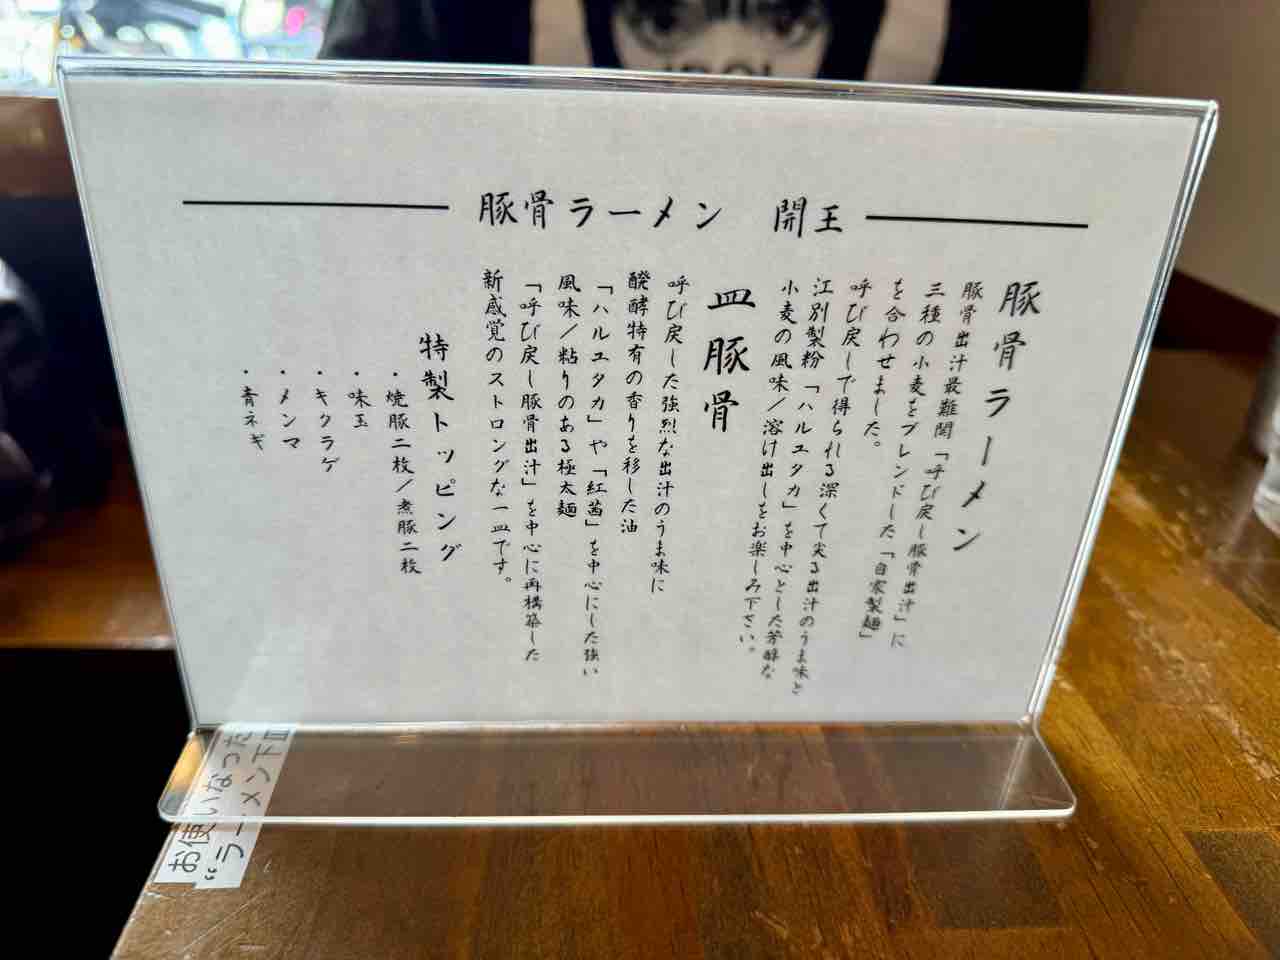 豚骨ラーメン 開王
豚骨ラーメン
豚骨出汁最難関「呼び戻し豚骨出汁」に
三種の小麦をブレンドした「自家製麺」
を合わせました。
呼び戻しで得られる深くて尖る出汁のうま味と
江別製粉「ハルユタカ」を中心とした芳醇な
小麦の風味/溶け出しをお楽しみ下さい。
皿豚骨
呼び戻した強烈な出汁のうま味に
醗酵特有の香りを移した油
「ハルユタカ」や「紅茜」を中心にした強い
風味/粘りのある極太麺
「呼び戻し豚骨出汁」を中心に再構築した
新感覚のストロングな一皿です。
特製トッピング
・焼豚二枚/煮豚二枚
・味玉
・キクラゲ
・メンマ
・青ネギ
お使いなった
“ラーメン下皿